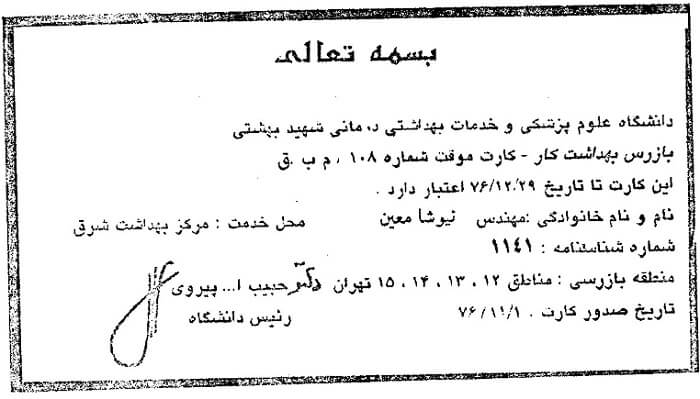 بسمه تعالی
دانشگاه علوم پزشکی و خدمات بهداشتی درمانی شهید بهشتی
بازرس بهداشت کار - کارت موقت شماره ۱۰۸ ، م ب . ق
این کارت تا تاریخ ۷۶/۱۲/۲۹ اعتبار دارد .
نام و نام خانوادگی : مهندس نیوشا معین محل خدمت : مرکز بهداشت شرق
شماره شناسنامه : ۱۱۴۱
منطقه بازرسی : مناطق ۱۲ ، ۱۳ ، ۱۴ ، ۱۵ تهران دکتر حبیب ا... پیروی
تاریخ صدور کارت . ۷۶/۱۱/۱ رئیس دانشگاه